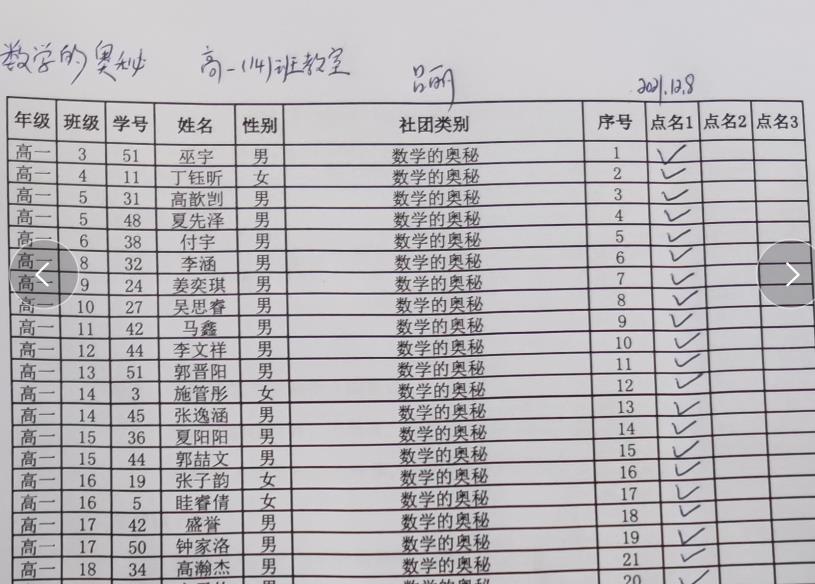 数学的奥秘 高一(14)班教室 吕丽 2021.12.8
年级 班级 学号 姓名 性别 社团类别 序号 点名1 点名2 点名3
高一 3 51 巫宇 男 数学的奥秘 1 ✓
高一 4 11 丁钰昕 女 数学的奥秘 2 ✓
高一 5 31 高歆剀 男 数学的奥秘 3 ✓
高一 5 48 夏先泽 男 数学的奥秘 4 ✓
高一 6 38 付宇 男 数学的奥秘 5 ✓
高一 8 32 李涵 男 数学的奥秘 6 ✓
高一 9 24 姜奕琪 男 数学的奥秘 7 ✓
高一 10 27 吴思睿 男 数学的奥秘 8 ✓
高一 11 42 马鑫 男 数学的奥秘 9 ✓
高一 12 44 李文祥 男 数学的奥秘 10 ✓
高一 13 51 郭晋阳 男 数学的奥秘 11 ✓
高一 14 3 施管彤 女 数学的奥秘 12 ✓
高一 14 45 张逸涵 男 数学的奥秘 13 ✓
高一 15 36 夏阳阳 男 数学的奥秘 14 ✓
高一 15 44 郭喆文 男 数学的奥秘 15 ✓
高一 16 19 张子韵 女 数学的奥秘 16 ✓
高一 16 5 眭睿倩 女 数学的奥秘 17 ✓
高一 17 42 盛誉 男 数学的奥秘 18 ✓
高一 17 50 钟家洛 男 数学的奥秘 19 ✓
高一 18 34 高瀚杰 男 数学的奥秘 21 ✓
数学的奥秘 20 ✓